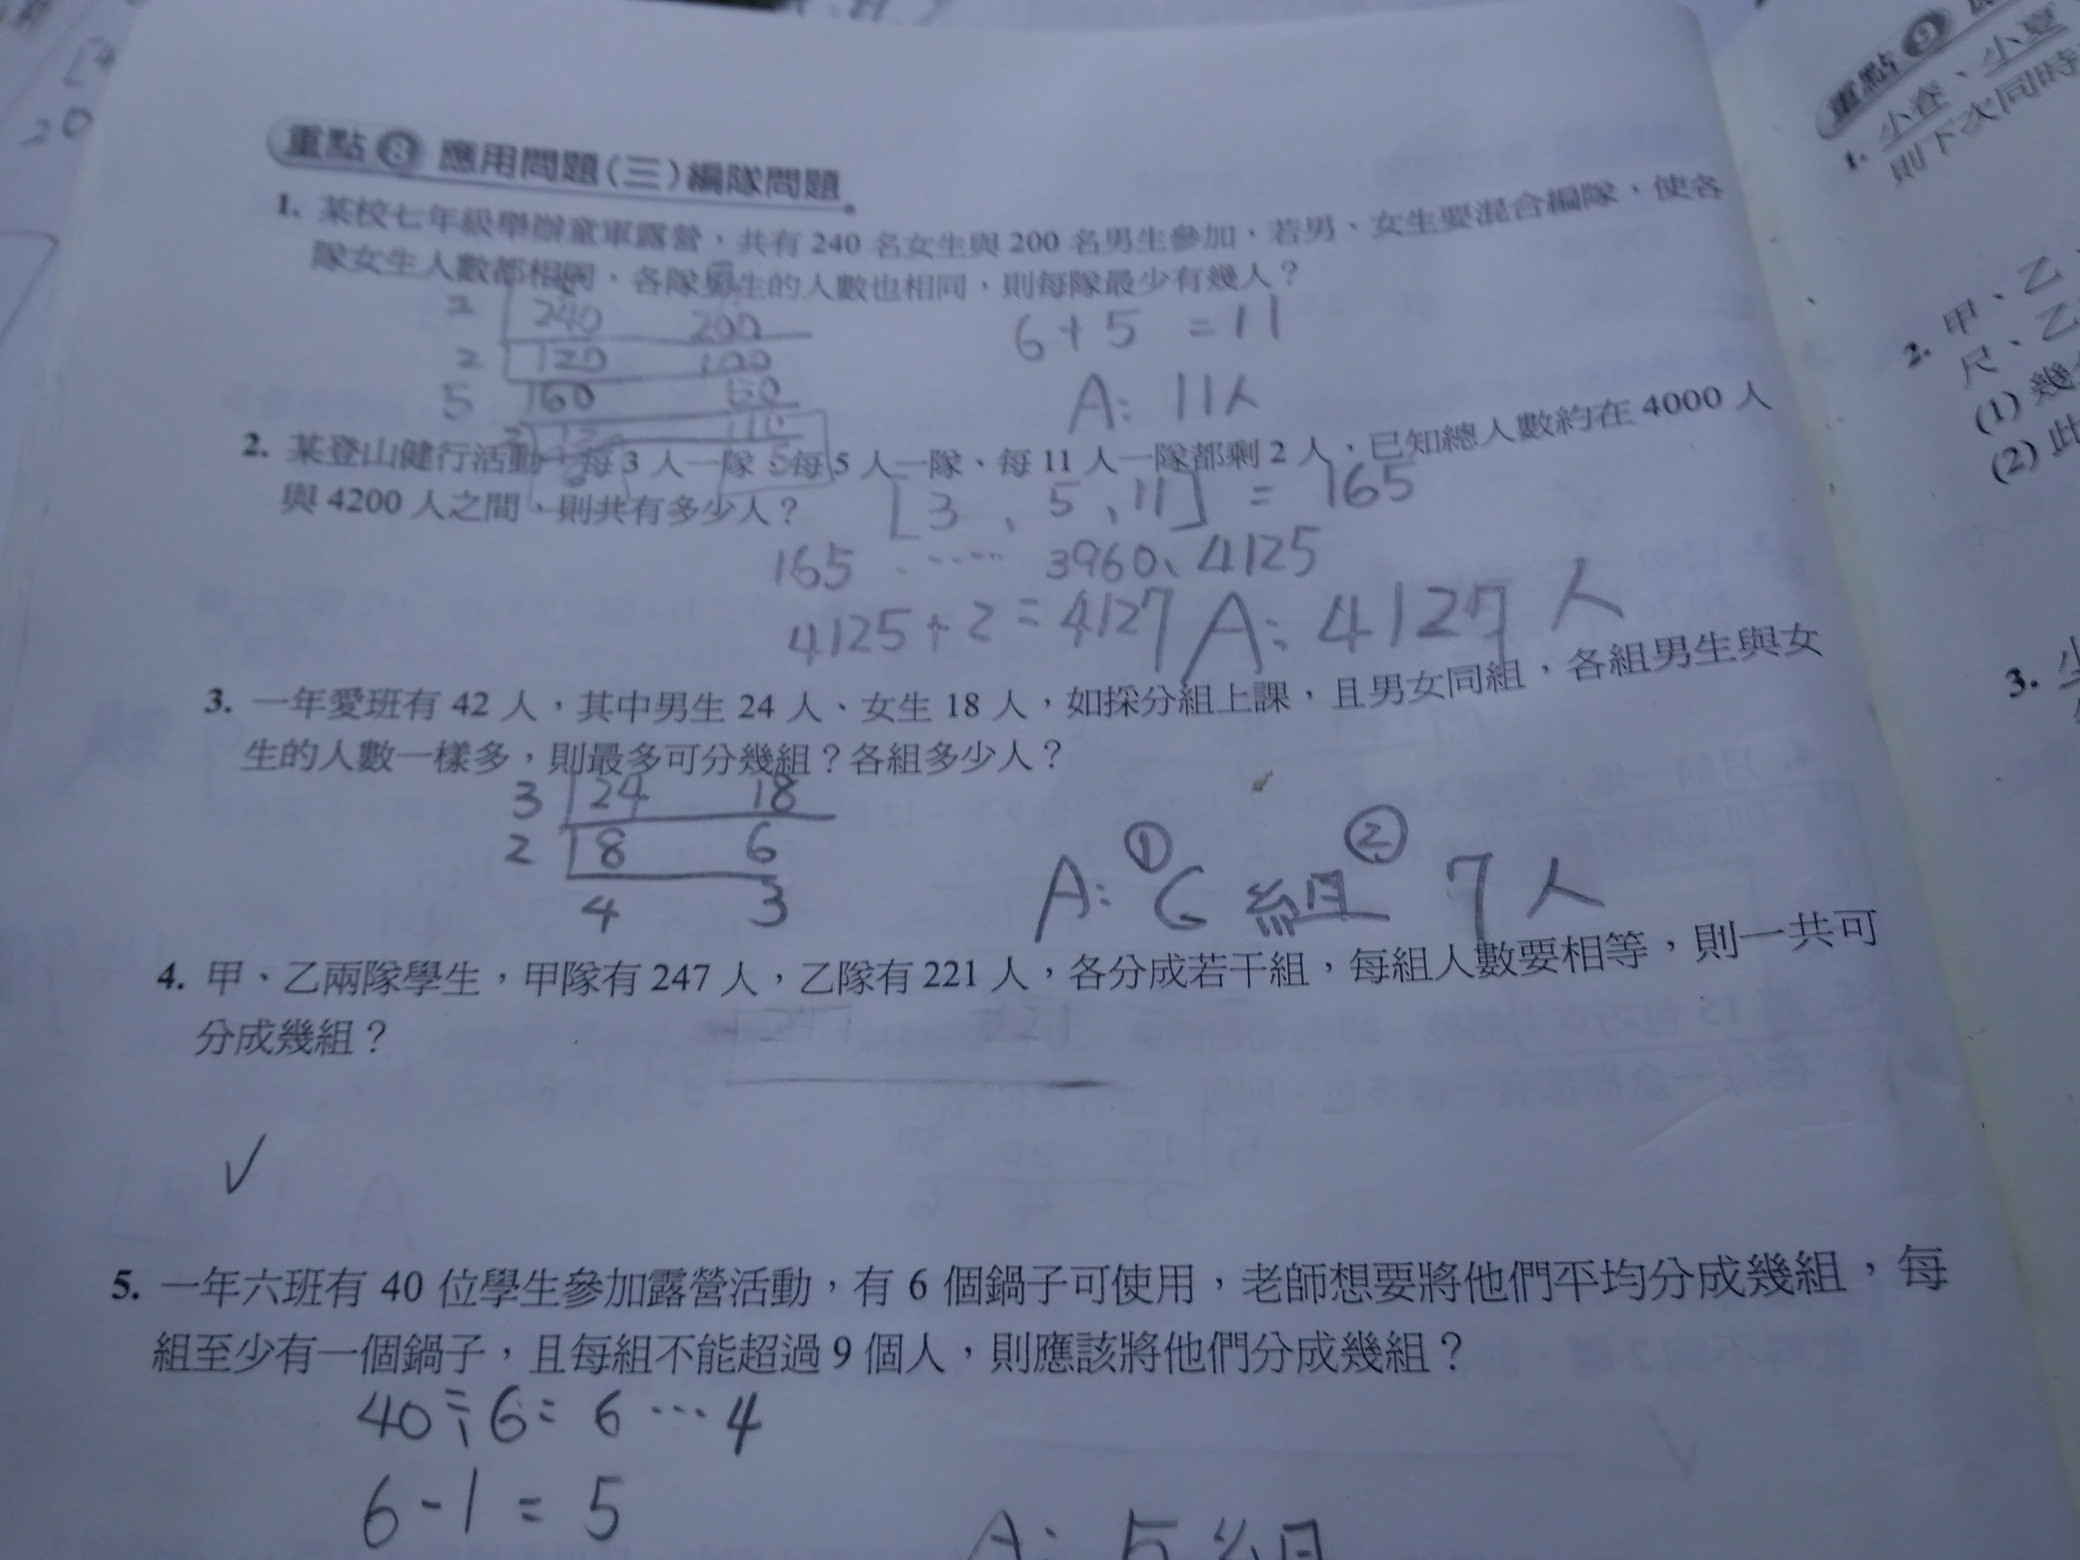 重點 8 應用問題(三)編隊問題
1. 某校七年級舉辦童軍露營，共有 240 名女生與 200 名男生參加，若男、女生要混合編隊，使各
隊女生人數都相同，各隊男生的人數也相同，則每隊最少有幾人？
2 240 200
2 120 100
5 60 50
6+5 =11
A: 11人
2. 某登山健行活動，每 3 人一隊、每 5 人一隊、每 11 人一隊都剩 2 人，已知總人數約在 4000 人
與 4200 人之間，則共有多少人？
[3、5、11] = 165
165 ..... 3960、4125
4125+2=4127 A: 4127人
3. 一年愛班有 42 人，其中男生 24 人、女生 18 人，如採分組上課，且男女同組，各組男生與女
生的人數一樣多，則最多可分幾組？各組多少人？
3 24 18
2 8 6
4 3
A: ①6組 ②7人
4. 甲、乙兩隊學生，甲隊有 247 人，乙隊有 221 人，各分成若干組，每組人數要相等，則一共可
分成幾組？
247 221
5. 一年六班有 40 位學生參加露營活動，有 6 個鍋子可使用，老師想要將他們平均分成幾組，每
組至少有一個鍋子，且每組不能超過 9 個人，則應該將他們分成幾組？
40÷6=6…4
6-1=5
A: 5組
重點 9
1. 小春、小夏
則下次同時
2. 甲、乙
尺、乙
(1) 幾
(2) 此
3.
20